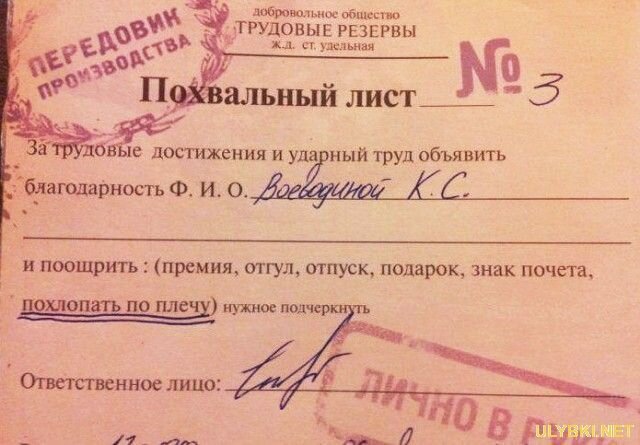 добровольное общество
ТРУДОВЫЕ РЕЗЕРВЫ
ж.д. ст. удельная
ПЕРЕДОВИК
ПРОИЗВОДСТВА
Похвальный лист № 3
За трудовые достижения и ударный труд объявить
благодарность Ф. И. О. Воеводиной К. С.
и поощрить : (премия, отгул, отпуск, подарок, знак почета,
похлопать по плечу) нужное подчеркнуть
Ответственное лицо:
ЛИЧНО В
ULYBKI.NET